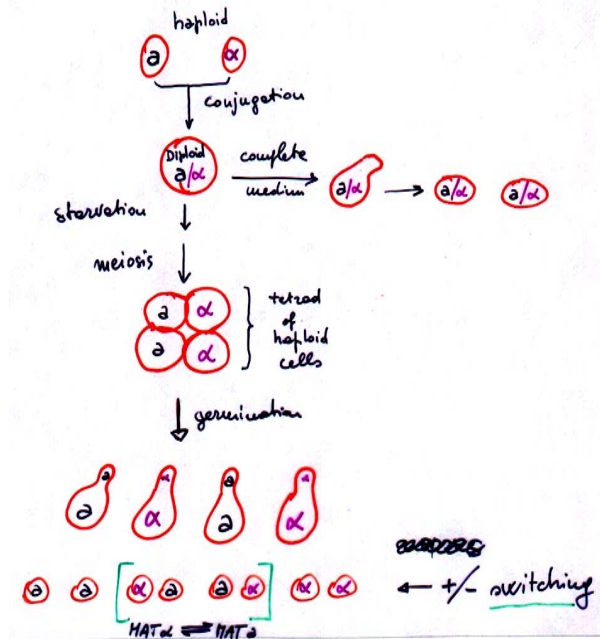 haploid
a α
conjugation
Diploid
a/α
complete
medium
a/α → a/α a/α
starvation
meiosis
a α
a α
tetrad
of
haploid
cells
germination
a α a α
a α a α
a a [α a a α] α α
← +/- switching
MATα ⇌ MATa